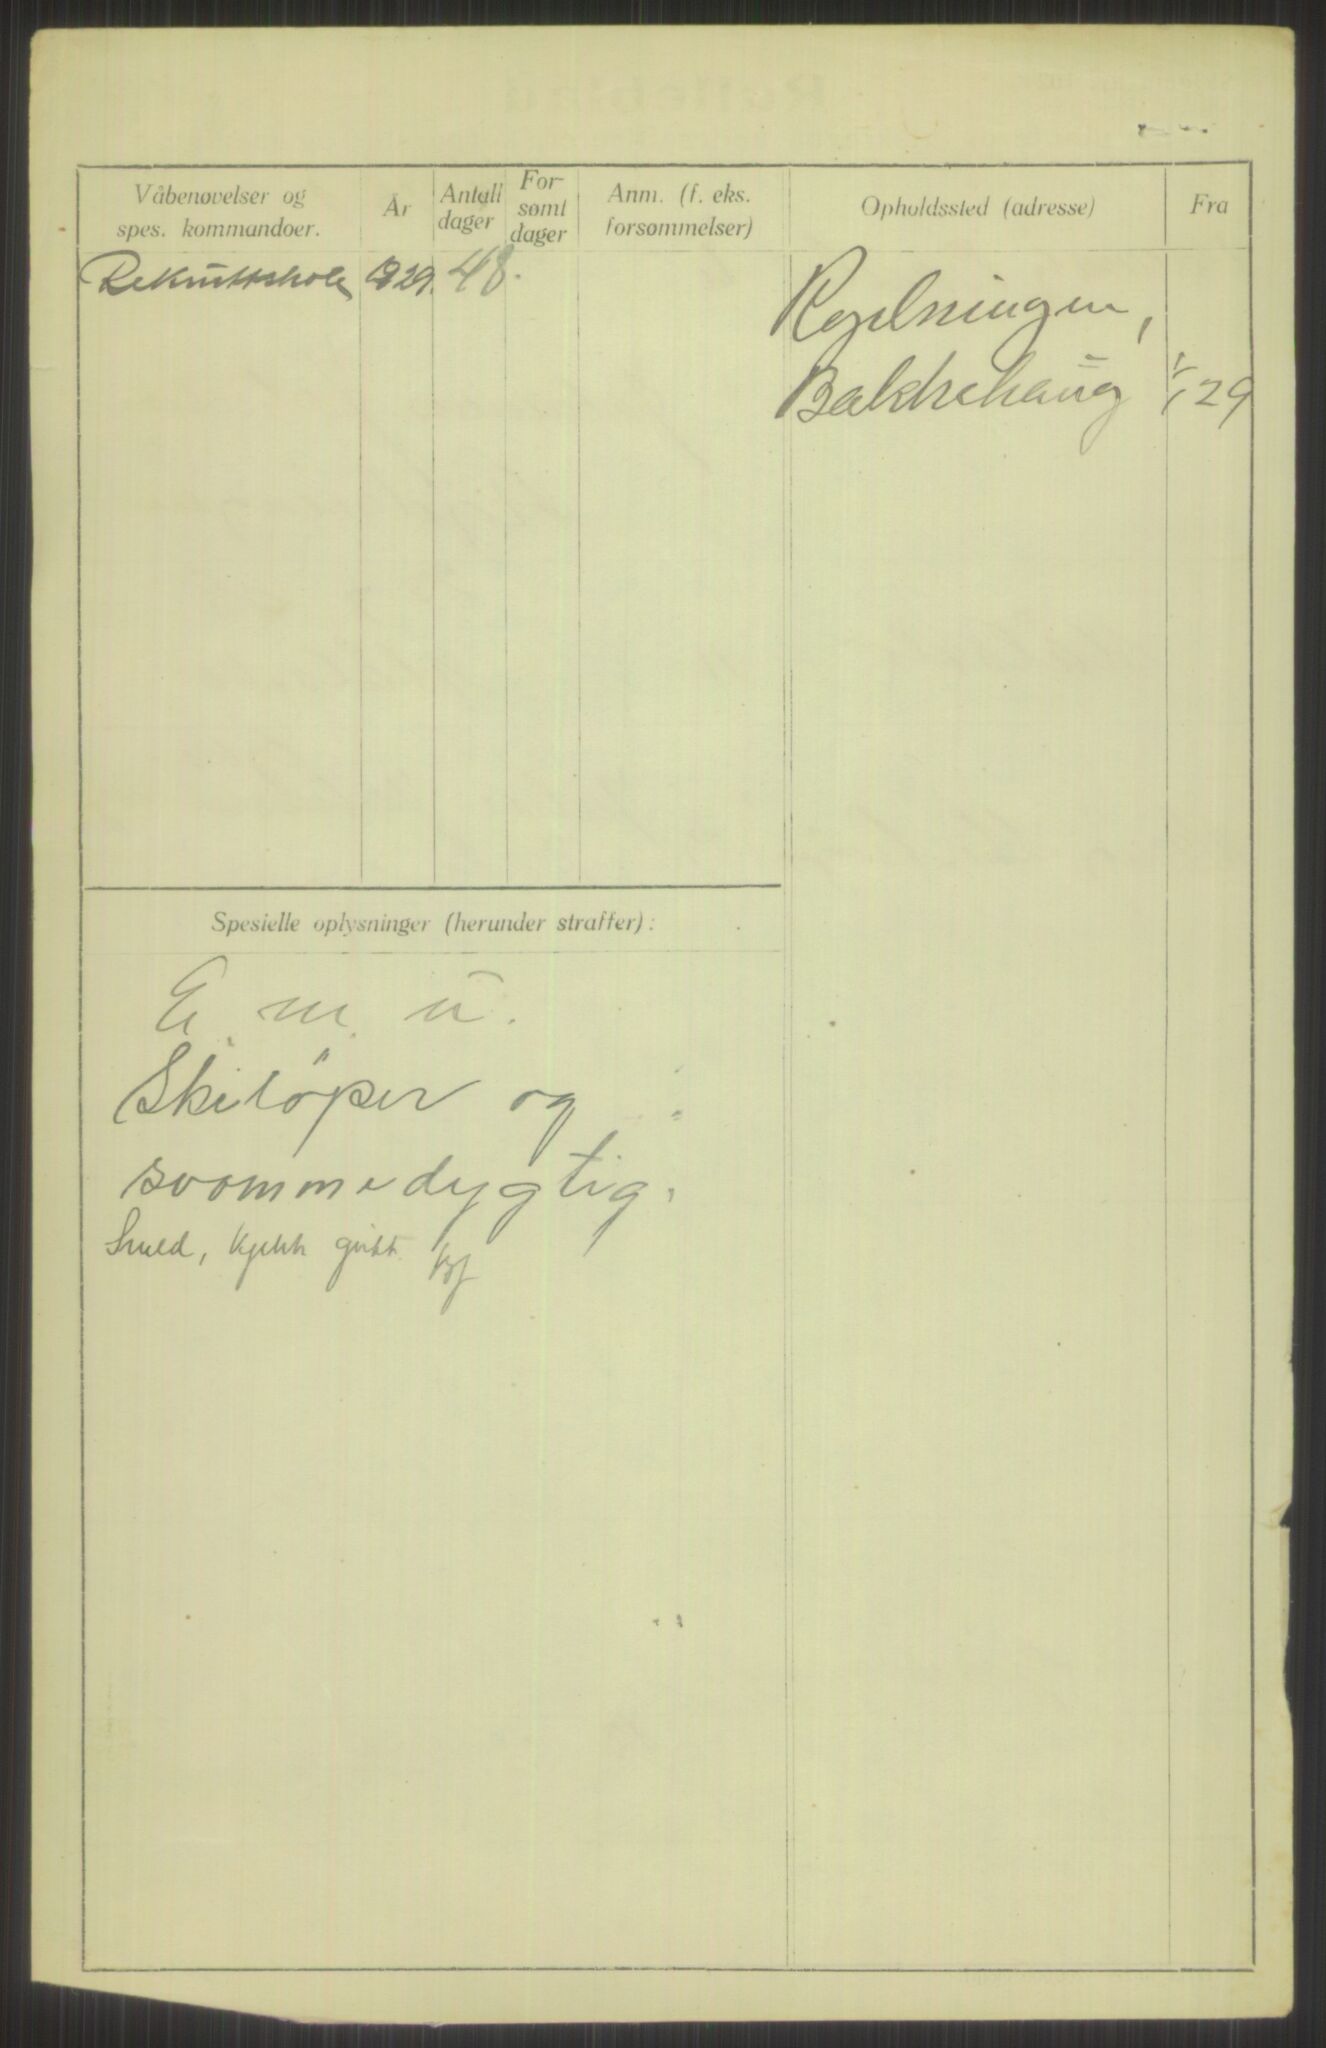 Våbenøvelser og
spes. kommandoer.
År
Antall
dager
For-
sømt
dager
Anm. (f. eks.
forsømmelser)
Opholdssted (adresse)
Fra
Rekruttskole 1929. 48.
Bakkehaug 29
Spesielle oplysninger (herunder straffer):
E. m. u.
Skiløper og
svømmedygtig.